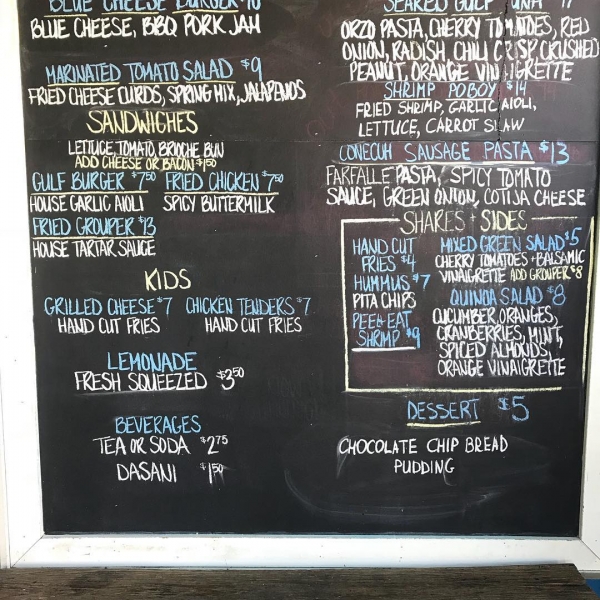 BLUE CHEESE BURGER
BLUE CHEESE, BBQ PORK JAM
MARINATED TOMATO SALAD $9
FRIED CHEESE CURDS, SPRING MIX, JALAPENOS
SANDWICHES
LETTUCE, TOMATO, BRIOCHE BUN
ADD CHEESE OR BACON $1.50
GULF BURGER $7.50 FRIED CHICKEN $7.50
HOUSE GARLIC AIOLI SPICY BUTTERMILK
FRIED GROUPER $13
HOUSE TARTAR SAUCE
KIDS
GRILLED CHEESE $7 CHICKEN TENDERS $7
HAND CUT FRIES HAND CUT FRIES
LEMONADE
FRESH SQUEEZED $3.50
BEVERAGES
TEA OR SODA $2.75
DASANI $1.50
SEARED GULF TUNA
ORZO PASTA, CHERRY TOMATOES, RED
ONION, RADISH, CHILI CRISP, CRUSHED
PEANUT, ORANGE VINAIGRETTE
SHRIMP POBOY $14
FRIED SHRIMP, GARLIC AIOLI,
LETTUCE, CARROT SLAW
CONECUH SAUSAGE PASTA $13
FARFALLE PASTA, SPICY TOMATO
SAUCE, GREEN ONION, COTIJA CHEESE
SHARES + SIDES
HAND CUT
FRIES $4
HUMMUS $7
PITA CHIPS
PEEL+EAT
SHRIMP $9
MIXED GREEN SALAD $5
CHERRY TOMATOES + BALSAMIC
VINAIGRETTE ADD GROUPER $8
QUINOA SALAD $8
CUCUMBER, ORANGES,
CRANBERRIES, MINT,
SPICED ALMONDS,
ORANGE VINAIGRETTE
DESSERT $5
CHOCOLATE CHIP BREAD
PUDDING